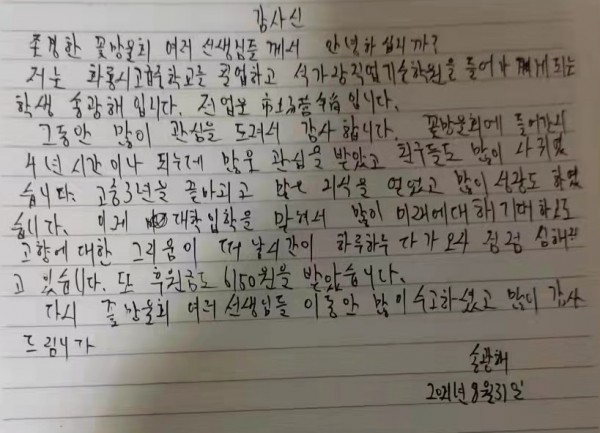 감사신
존경한 꽃망울회 여러 선생님들께서 안녕하십니까?
저는 화룡시고급중학교를 졸업하고 석가장직업기술학원을 들어가게 되는
학생 송광해 입니다. 전업은 입니다.
그동안 많이 관심을 드려서 감사합니다. 꽃망울회에 들어가서
4년 시간이나 되는데 많은 관심을 받았고 친구들도 많이 사귀였
습니다. 고중3년을 끝마치고 많은 지식을 얻었고 많이 성장도 하였
습니다. 이제 대학입학을 맞아서 많이 미래에 대해 기대하므로
고향에 대한 그리움이 떠날 시간이 하루하루 다가오자 점점 심해
고 있습니다. 또 후원금도 6150원을 받았습니다.
다시 꽃망울회 여러 선생님들 이동안 많이 수고하셨고 많이 감사
드립니다
송광해
2021년 8월 31일